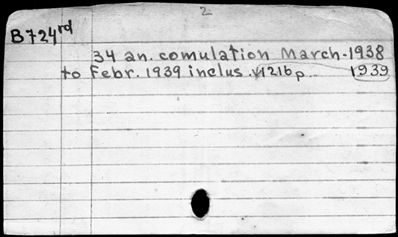 2
B724rd
34 an. comulation March-1938
to Febr. 1939 inclus. 1216p 1939